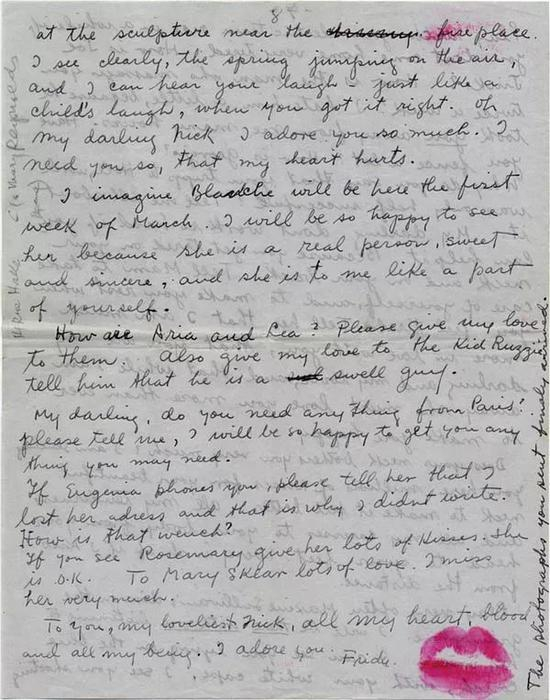 8
at the sculpture near the fire place.
I see clearly, the spring jumping on the air,
and I can hear your laugh – just like a
child's laugh, when you got it right. Oh
my darling Nick I adore you so much. I
need you so, that my heart hurts.
I imagine Blanche will be here the first
week of March. I will be so happy to see
her because she is a real person, sweet
and sincere, and she is to me like a part
of yourself.
How are Aria and Lea? Please give my love
to them. Also give my love to the Kid Ruzzie,
tell him that he is a swell guy.
My darling, do you need any thing from Paris?
please tell me, I will be so happy to get you any
thing you may need.
If Eugenia phones you, please tell her that I
lost her adress and that is why I didnt write.
How is that wench?
If you see Rosemary give her lots of kisses. She
is O.K. To Mary Sklar lots of love. I miss
her very much.
To you, my loveliest Nick, all my heart, blood
and all my being. I adore you. Frida.
The photographs you sent finally arrived.
c/o Mary Reynolds